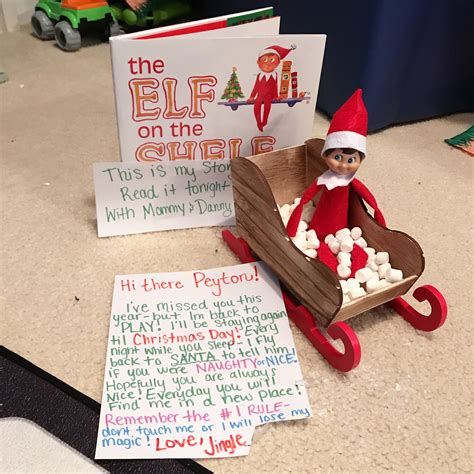 the
ELF
on the
SHELF
This is my Stor
Read it tonight
With Mommy & Danny
Hi there Peyton!
I've missed you this
year-but Im back to
PLAY! I'll be staying again
til Christmas Day! Every
night while you sleep - i fly
back to SANTA to tell him
if you were NAUGHTY or NICE!
Hopefully you are always
Nice! Everyday you will
Find me in a new place!
Remember the #1 RULE-
dont touch me or I will lose my
magic! Love, Jingle